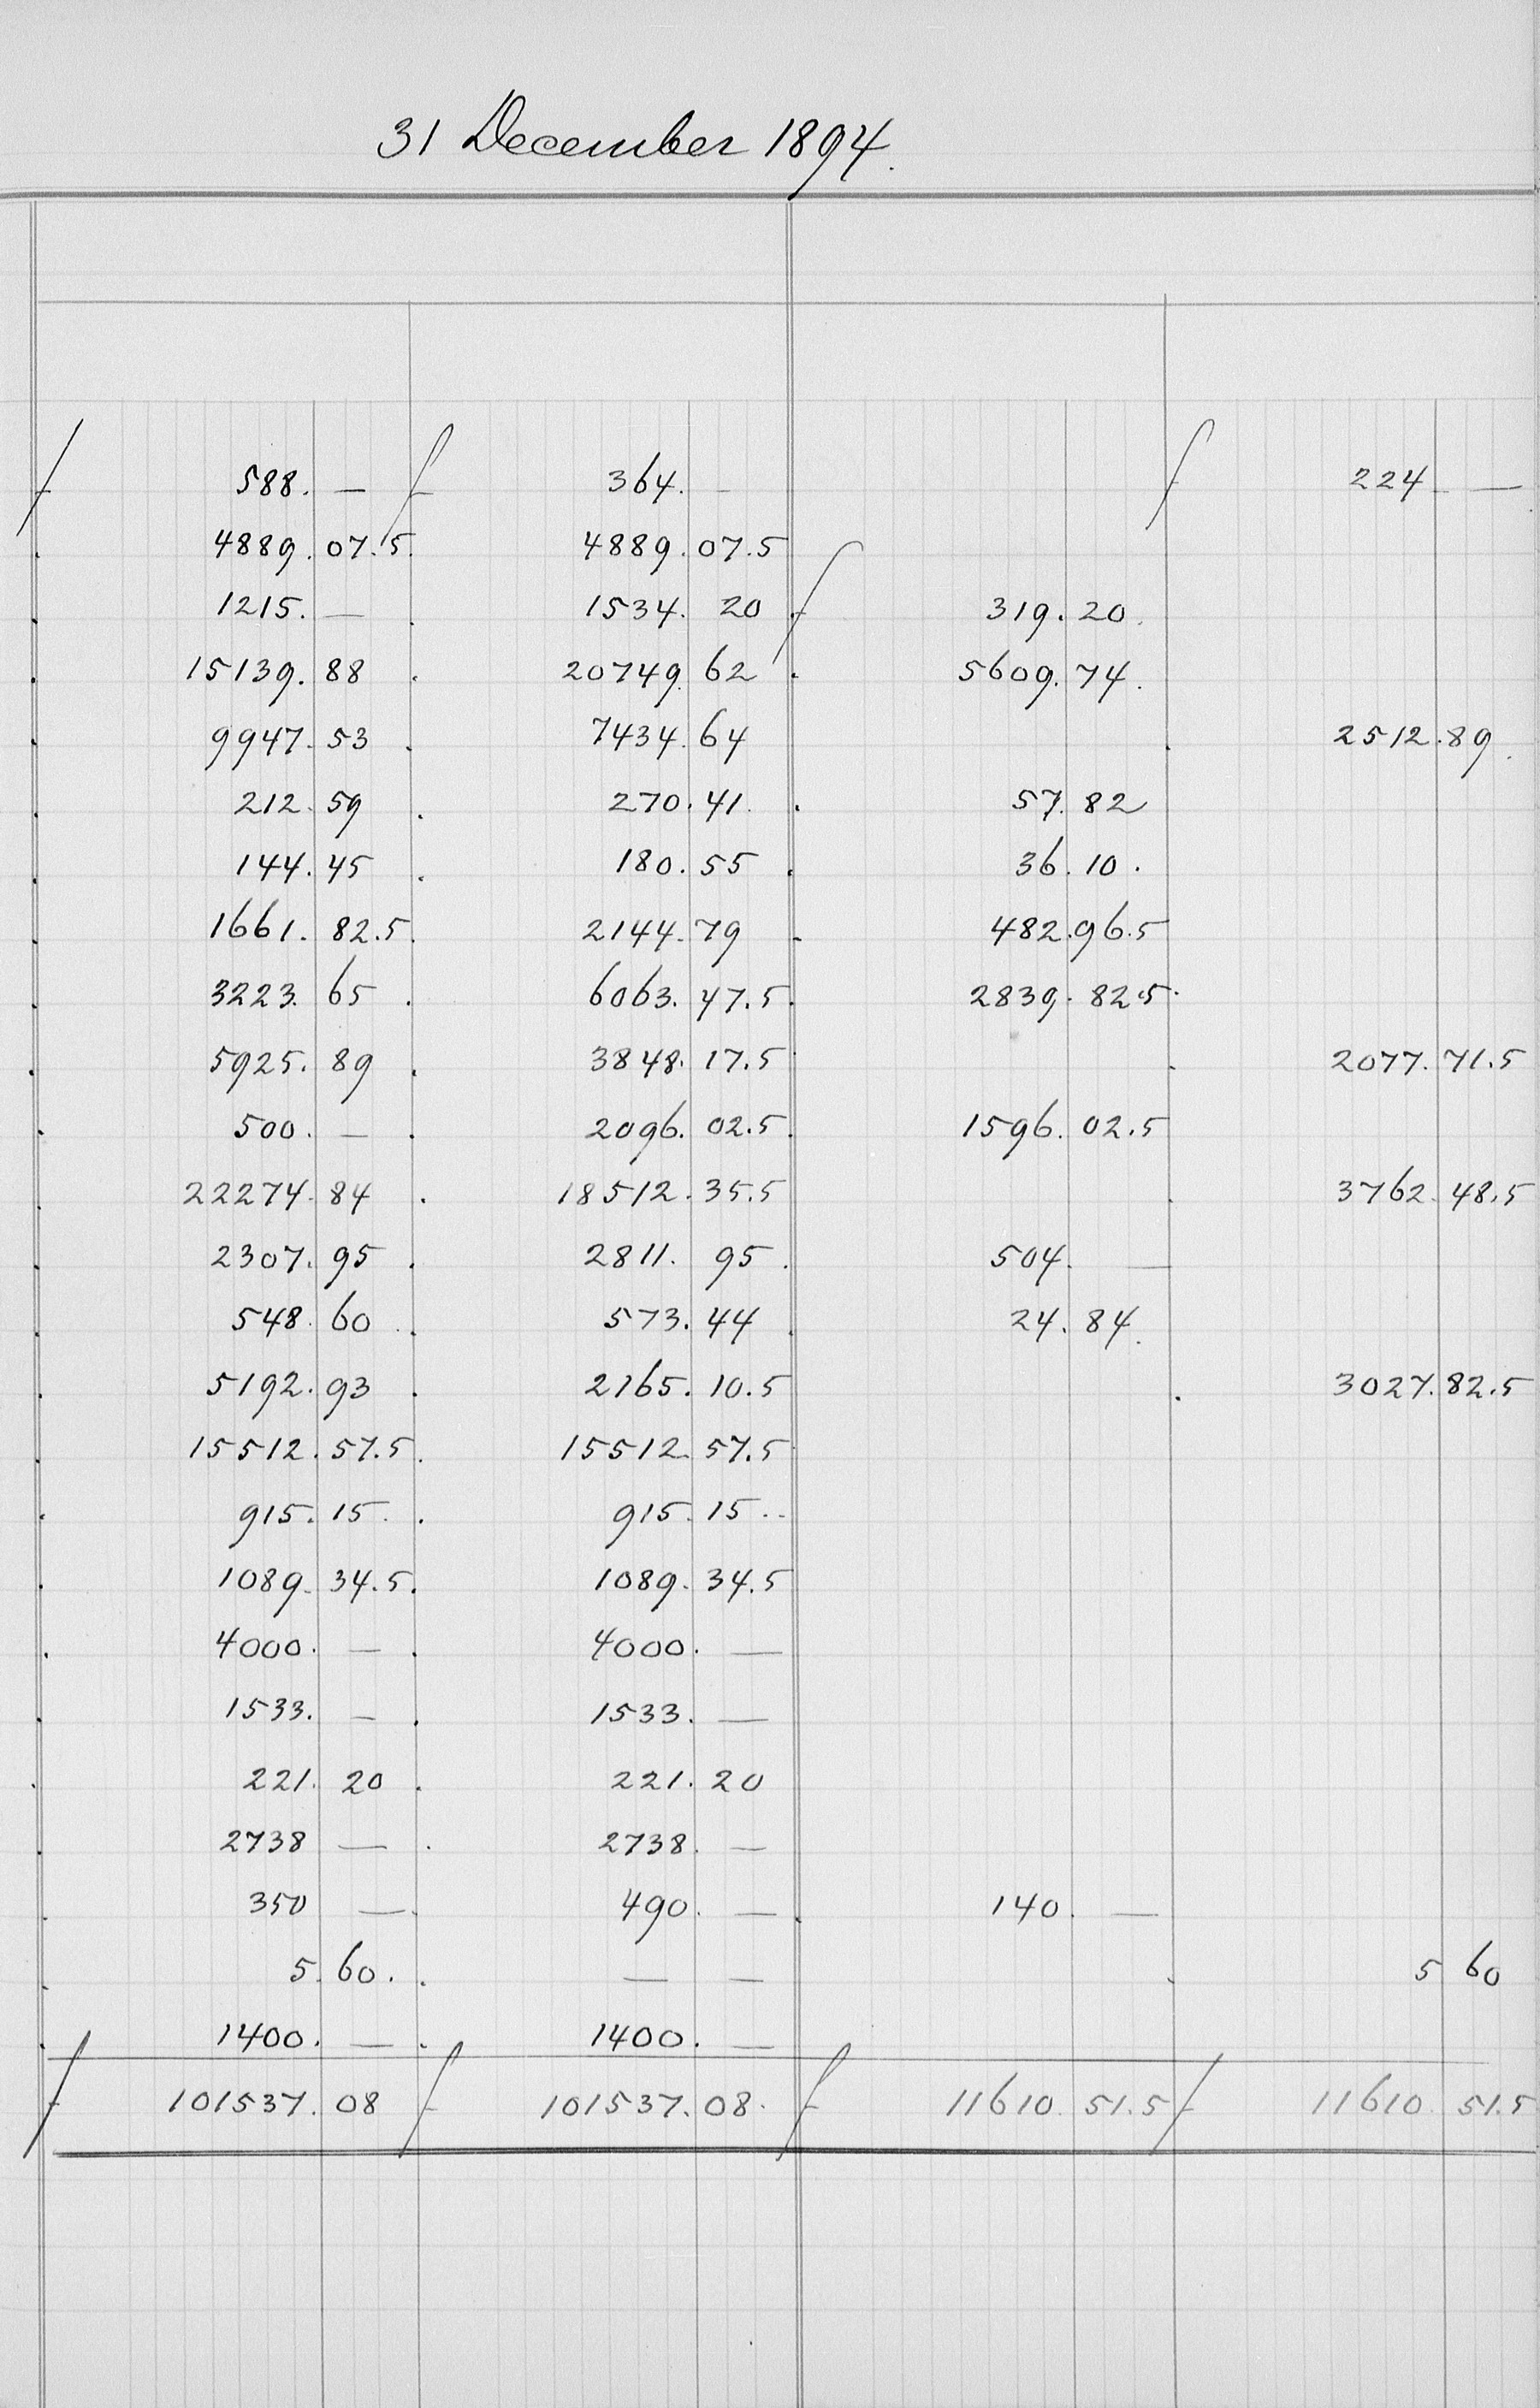 31 December 1894.
f 588. — f 364. — f 224 —
4889. 07.5 4889. 07.5
1215. — 1534. 20 f 319. 20.
15139. 88 20749. 62 5609. 74.
9947. 53 7434. 64 2512. 89.
212. 59 270. 41. 57. 82
144. 45 180. 55 36. 10.
1661. 82.5 2144. 79 482. 96.5
3223. 65 6063. 47.5 2839. 82.5
5925. 89 3848. 17.5 2077. 71.5
500. — 2096. 02.5 1596. 02.5
22274. 84 18512. 35.5 3762. 48.5
2307. 95 2811. 95 504. —
548. 60 573. 44 24. 84.
5192. 93 2165. 10.5 3027. 82.5
15512. 57.5 15512. 57.5
915. 15. 915. 15.
1089. 34.5 1089. 34.5
4000. — 4000. —
1533. — 1533. —
221. 20 221. 20
2738 — 2738. —
350 — 490. — 140. —
5. 60. — — 5 60
1400. — 1400. —
f 101537. 08 f 101537. 08. f 11610. 51.5 f 11610. 51.5